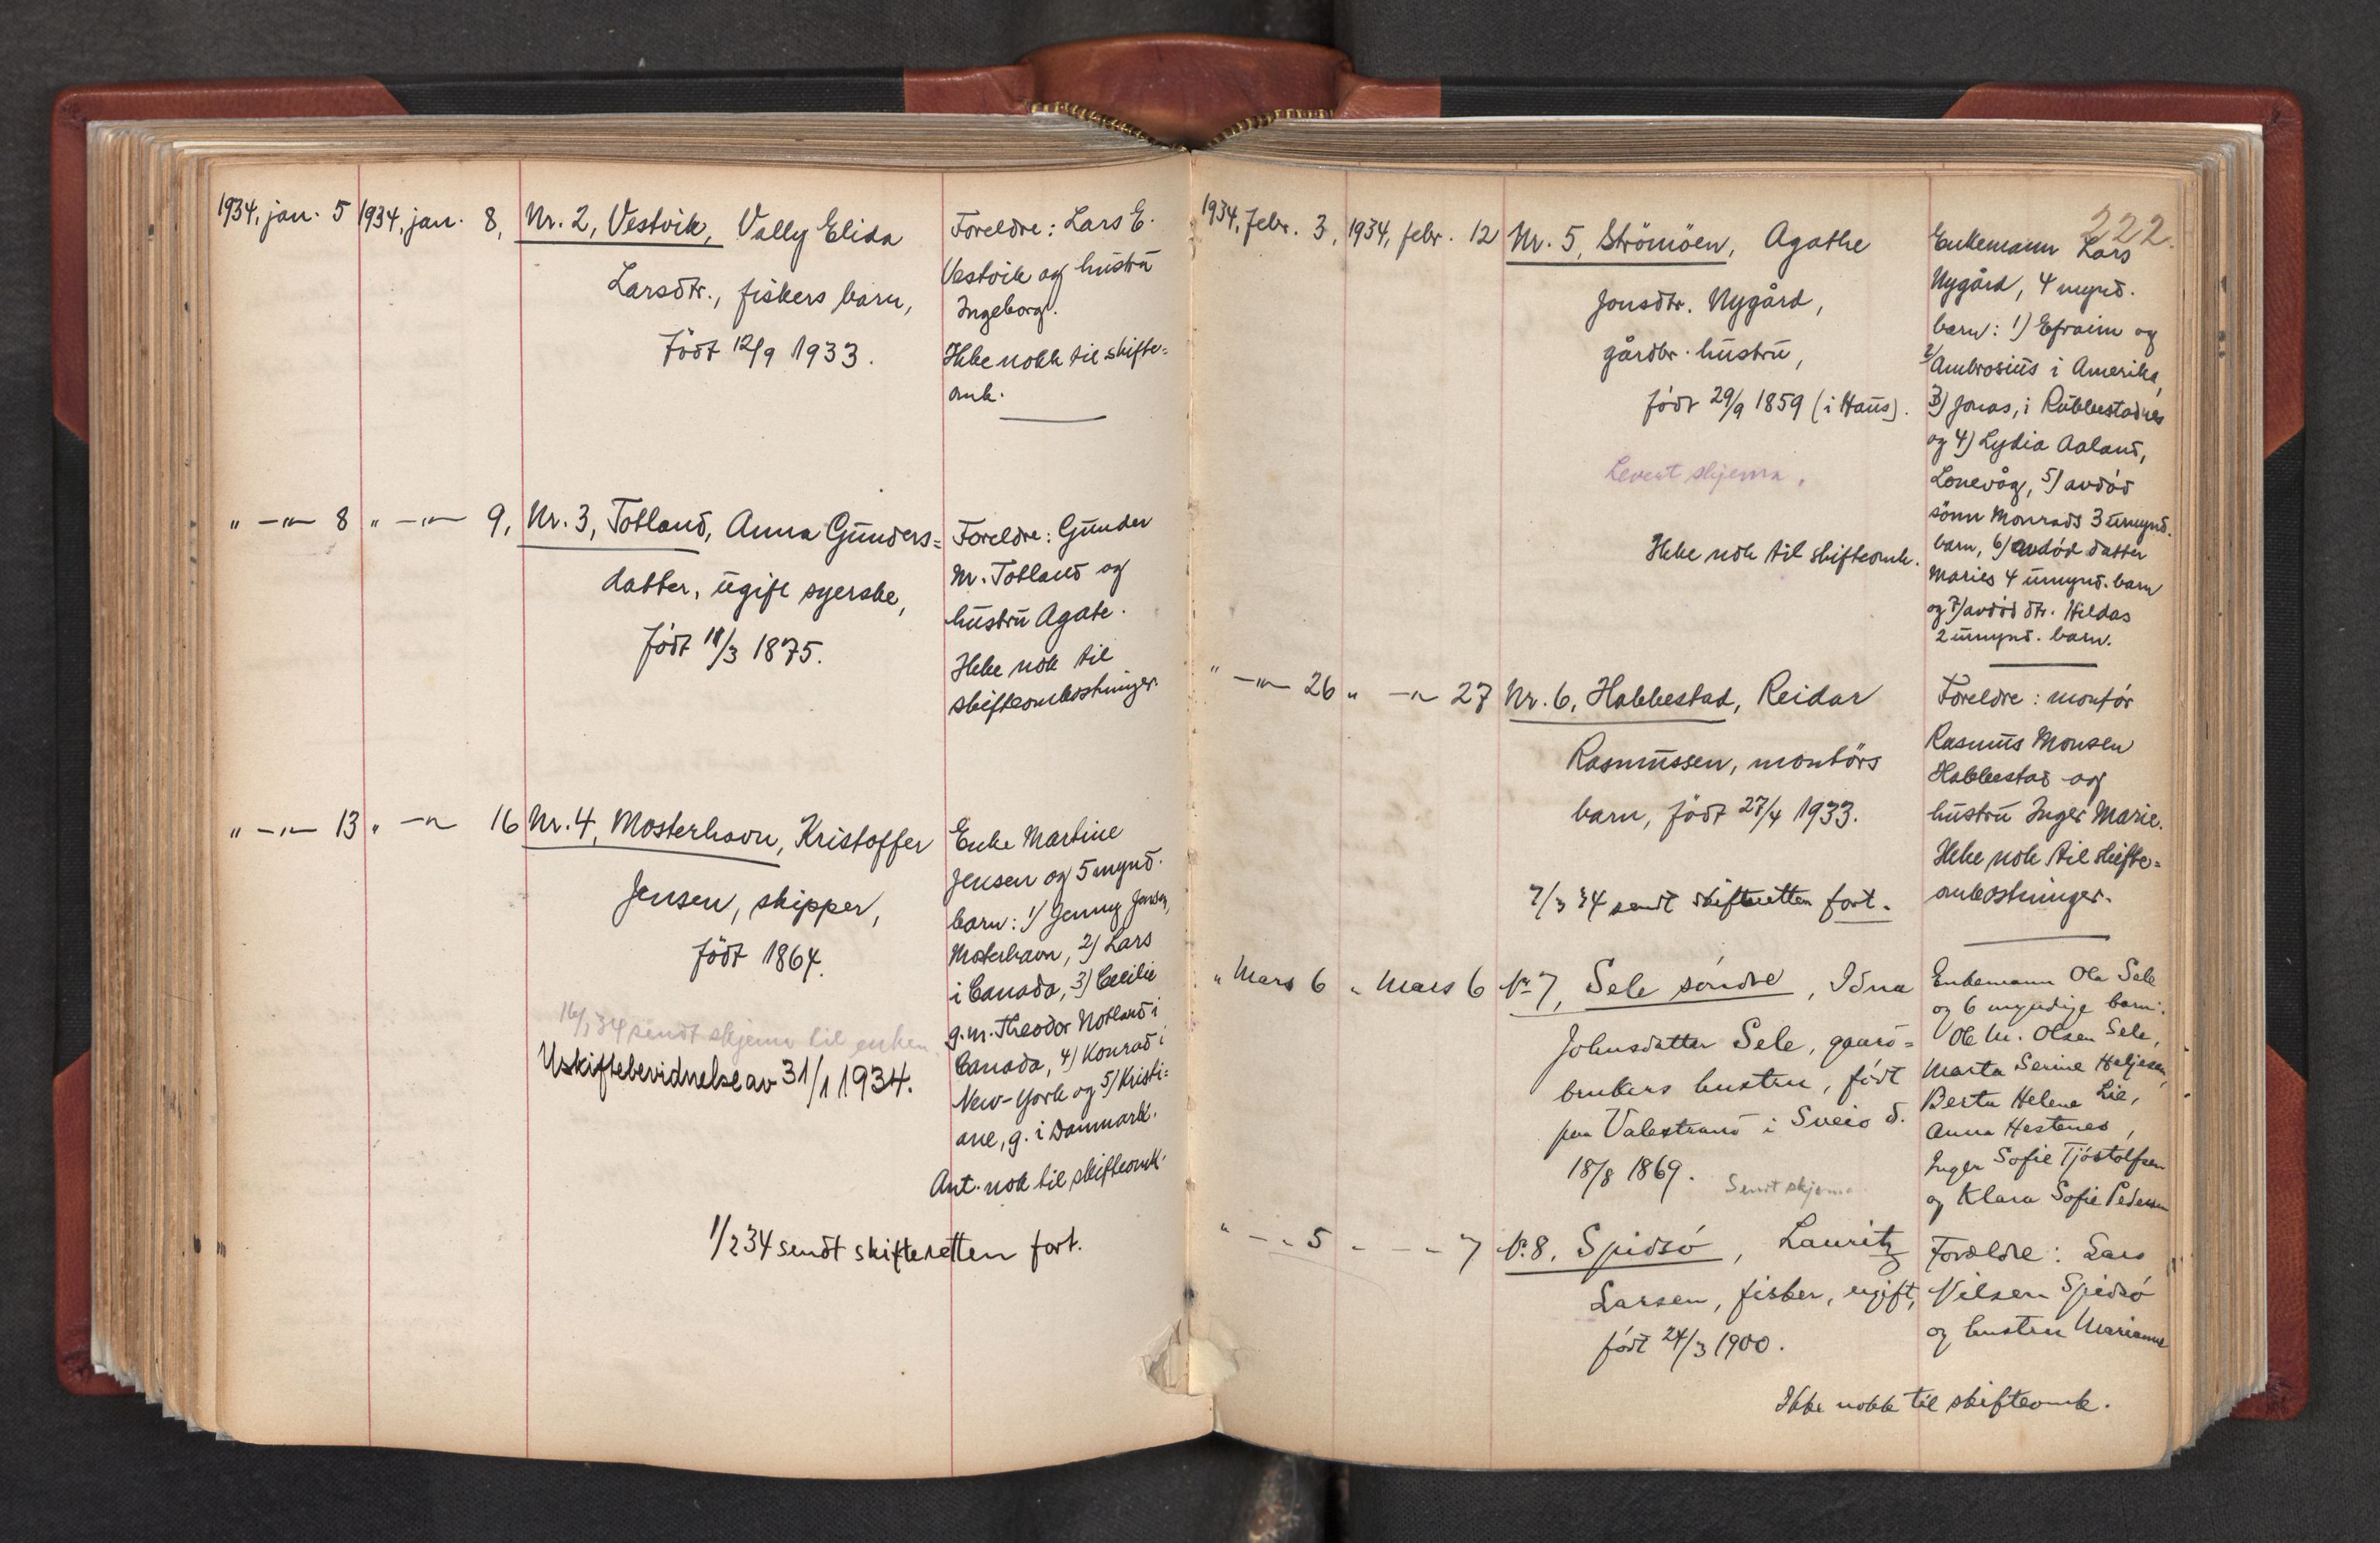 1934, jan. 5 1934, jan. 8, Nr. 2, Vestvik, Vally Elida
Larsdtr., fiskers barn,
Född 12/9 1933.
Foreldre: Lars E.
Vestvik og hustru
Ingeborg.
Ikke nokk til skifte=
omk.
" —"— 8 " —"— 9, Nr. 3, Totland, Anna Gunders=
datter, ugift syerske,
født 18/3 1875.
Foreldre: Gunder
M. Totland og
hustru Agate.
Ikke nok til
skifteomkostninger.
" —"— 13 " —"— 16 Nr. 4, Mosterhavn, Kristoffer
Jensen, skipper,
født 1864.
16/1 34 sendt skjema til enken.
Uskiftebevidnelse av 31/1 1934.
Enke Martine
Jensen og 5 mynd.
barn: 1) Jenny Jensen,
Mosterhavn, 2) Lars
i Canada, 3) Cecilie
g.m. Theodor Notland i
Canada, 4) Konrad i
New-York og 5) Kristi=
ane, g. i Danmark.
Ant. nok til skifteomk.
1/2 34 sendt skifteretten fort.
222.
1934, febr. 3, 1934, febr. 12 Nr. 5, Strömöen, Agathe
Jonsdtr. Nygård,
gårdbr. hustru,
født 29/9 1859 (i Haus).
Levert skjema.
Ikke nok til skifteomk.
Enkemann Lars
Nygård, 4 mynd.
barn: 1) Efraim og
2) Ambrosius i Amerika,
3) Jonas, i Rubbestadnes
og 4) Lydia Aaland,
Lonevåg, 5) avdød
sönn Monrads 3 umynd.
barn, 6) avdød datter
Maries 4 umynd. barn
og 7) avdød dtr. Hildas
2 umynd. barn.
" —"— 26 " —"— 27 Nr. 6, Habbestad, Reidar
Rasmussen, montörs
barn, født 27/4 1933.
7/3 34 sendt skifteretten fort.
Foreldre: montør
Rasmus Monsen
Habbestad og
hustru Inger Marie.
Ikke nok til skifte=
omkostninger.
" Mars 6 " Mars 6 Nr 7, Sele søndre, Idna
Johnsdatter Sele, gaard=
brukers hustru, født
paa Valestrand i Sveio d.
18/8 1869. Sendt skjema.
Enkemann Ole Sele
og 6 myndige barn:
Ole M. Olsen Sele,
Marta Serine Heljesen,
Berta Helene Lie,
Anna Hestenes,
Inger Sofie Tjøstolfsen
og Klara Sofie Pedersen
" — " 5 " — " 7 Nr. 8, Spidsø, Lauritz
Larsen, fisker, ugift,
født 24/3 1900.
Forældre: Lars
Nilsen Spidsø
og hustru Marianne
Ikke nokk til skifteomk.